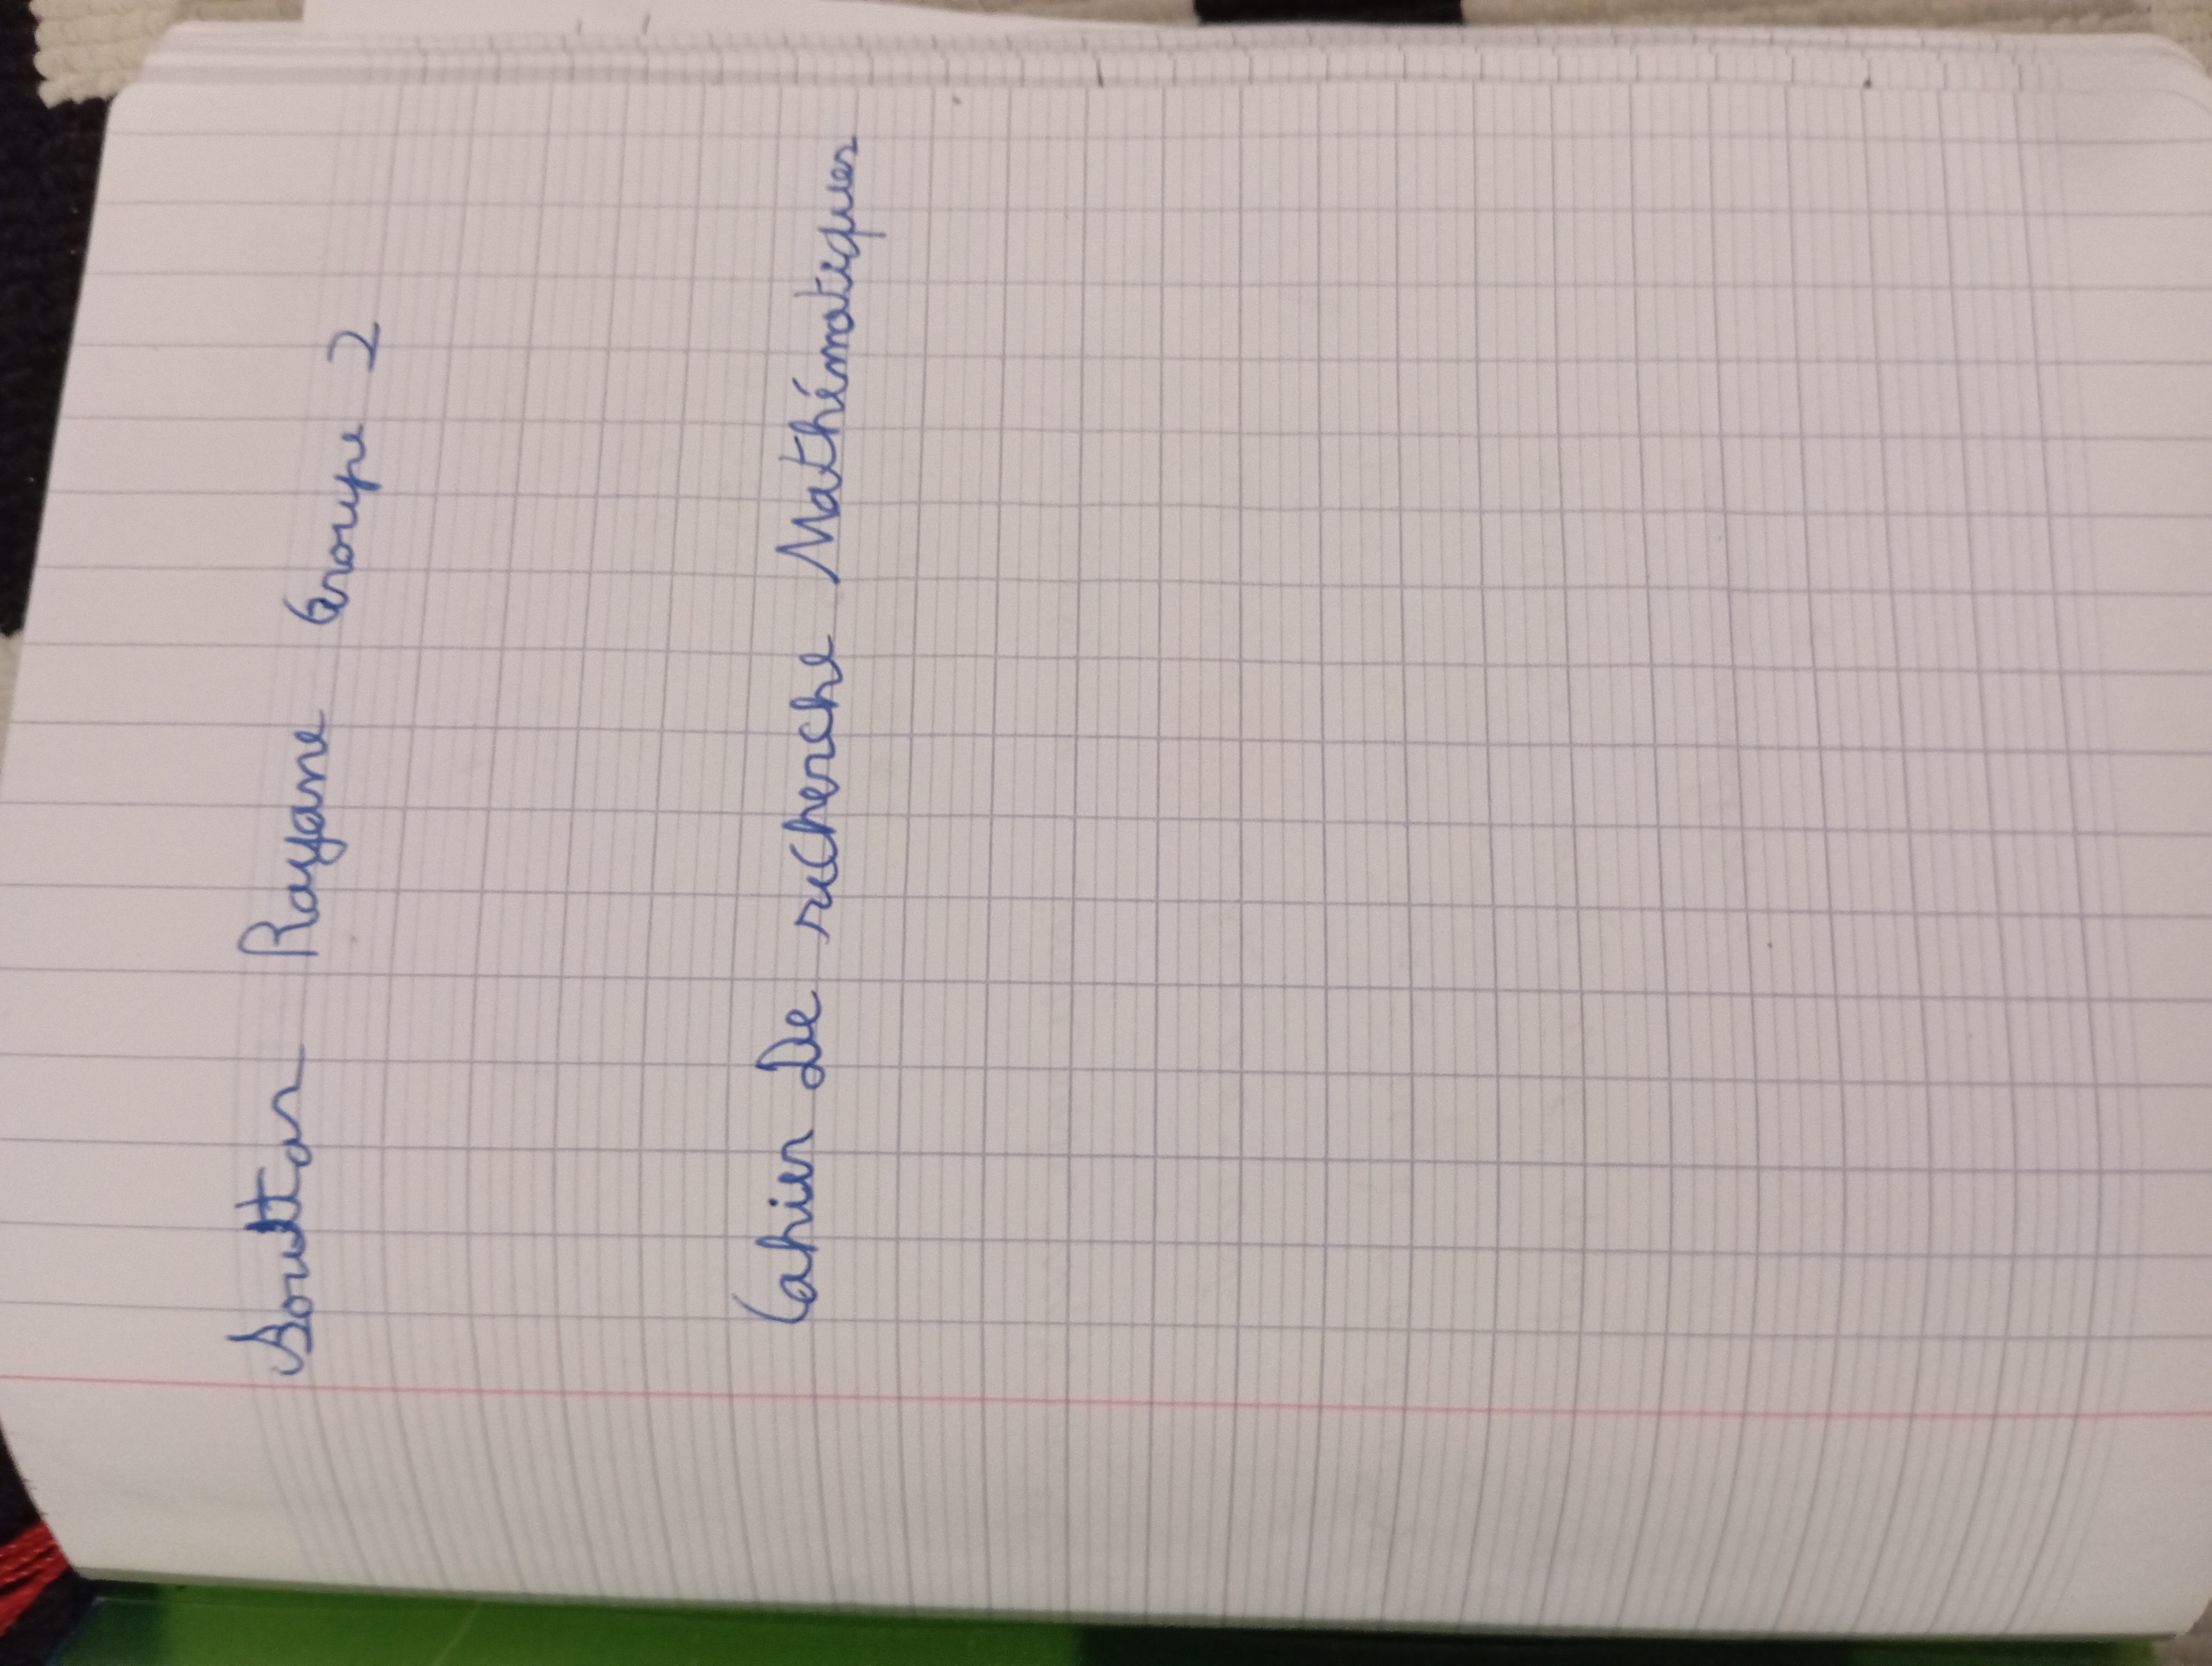 Souttar Rayane Groupe 2
Cahier De recherche Mathématiques